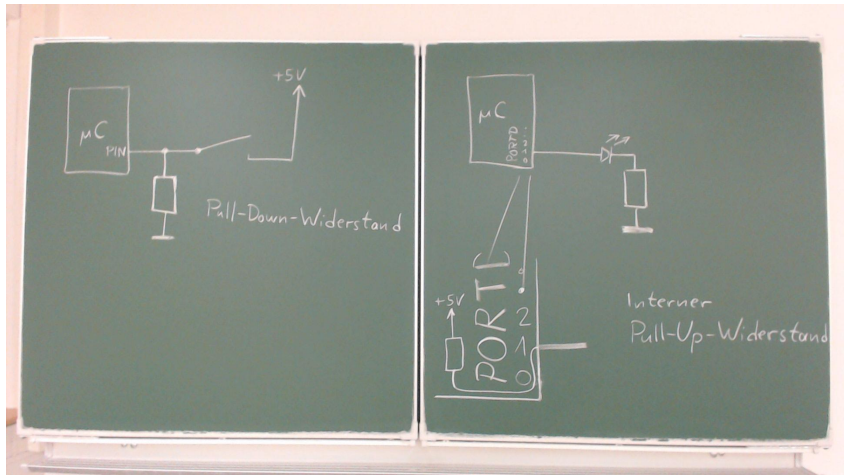 +5V
μC
PIN
Pull-Down-Widerstand
μC
PORTD
0 1 2 . .
PORTD
+5V
2
1
0
Interner
Pull-Up-Widerstand